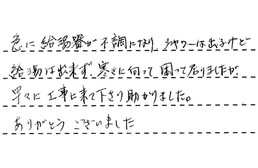 急に給湯器が不調になり、シャワーは出るけど
給湯は出来ず、寒さに向って困って居りましたが
早々に工事に来て下さり助かりました。
ありがとうございました